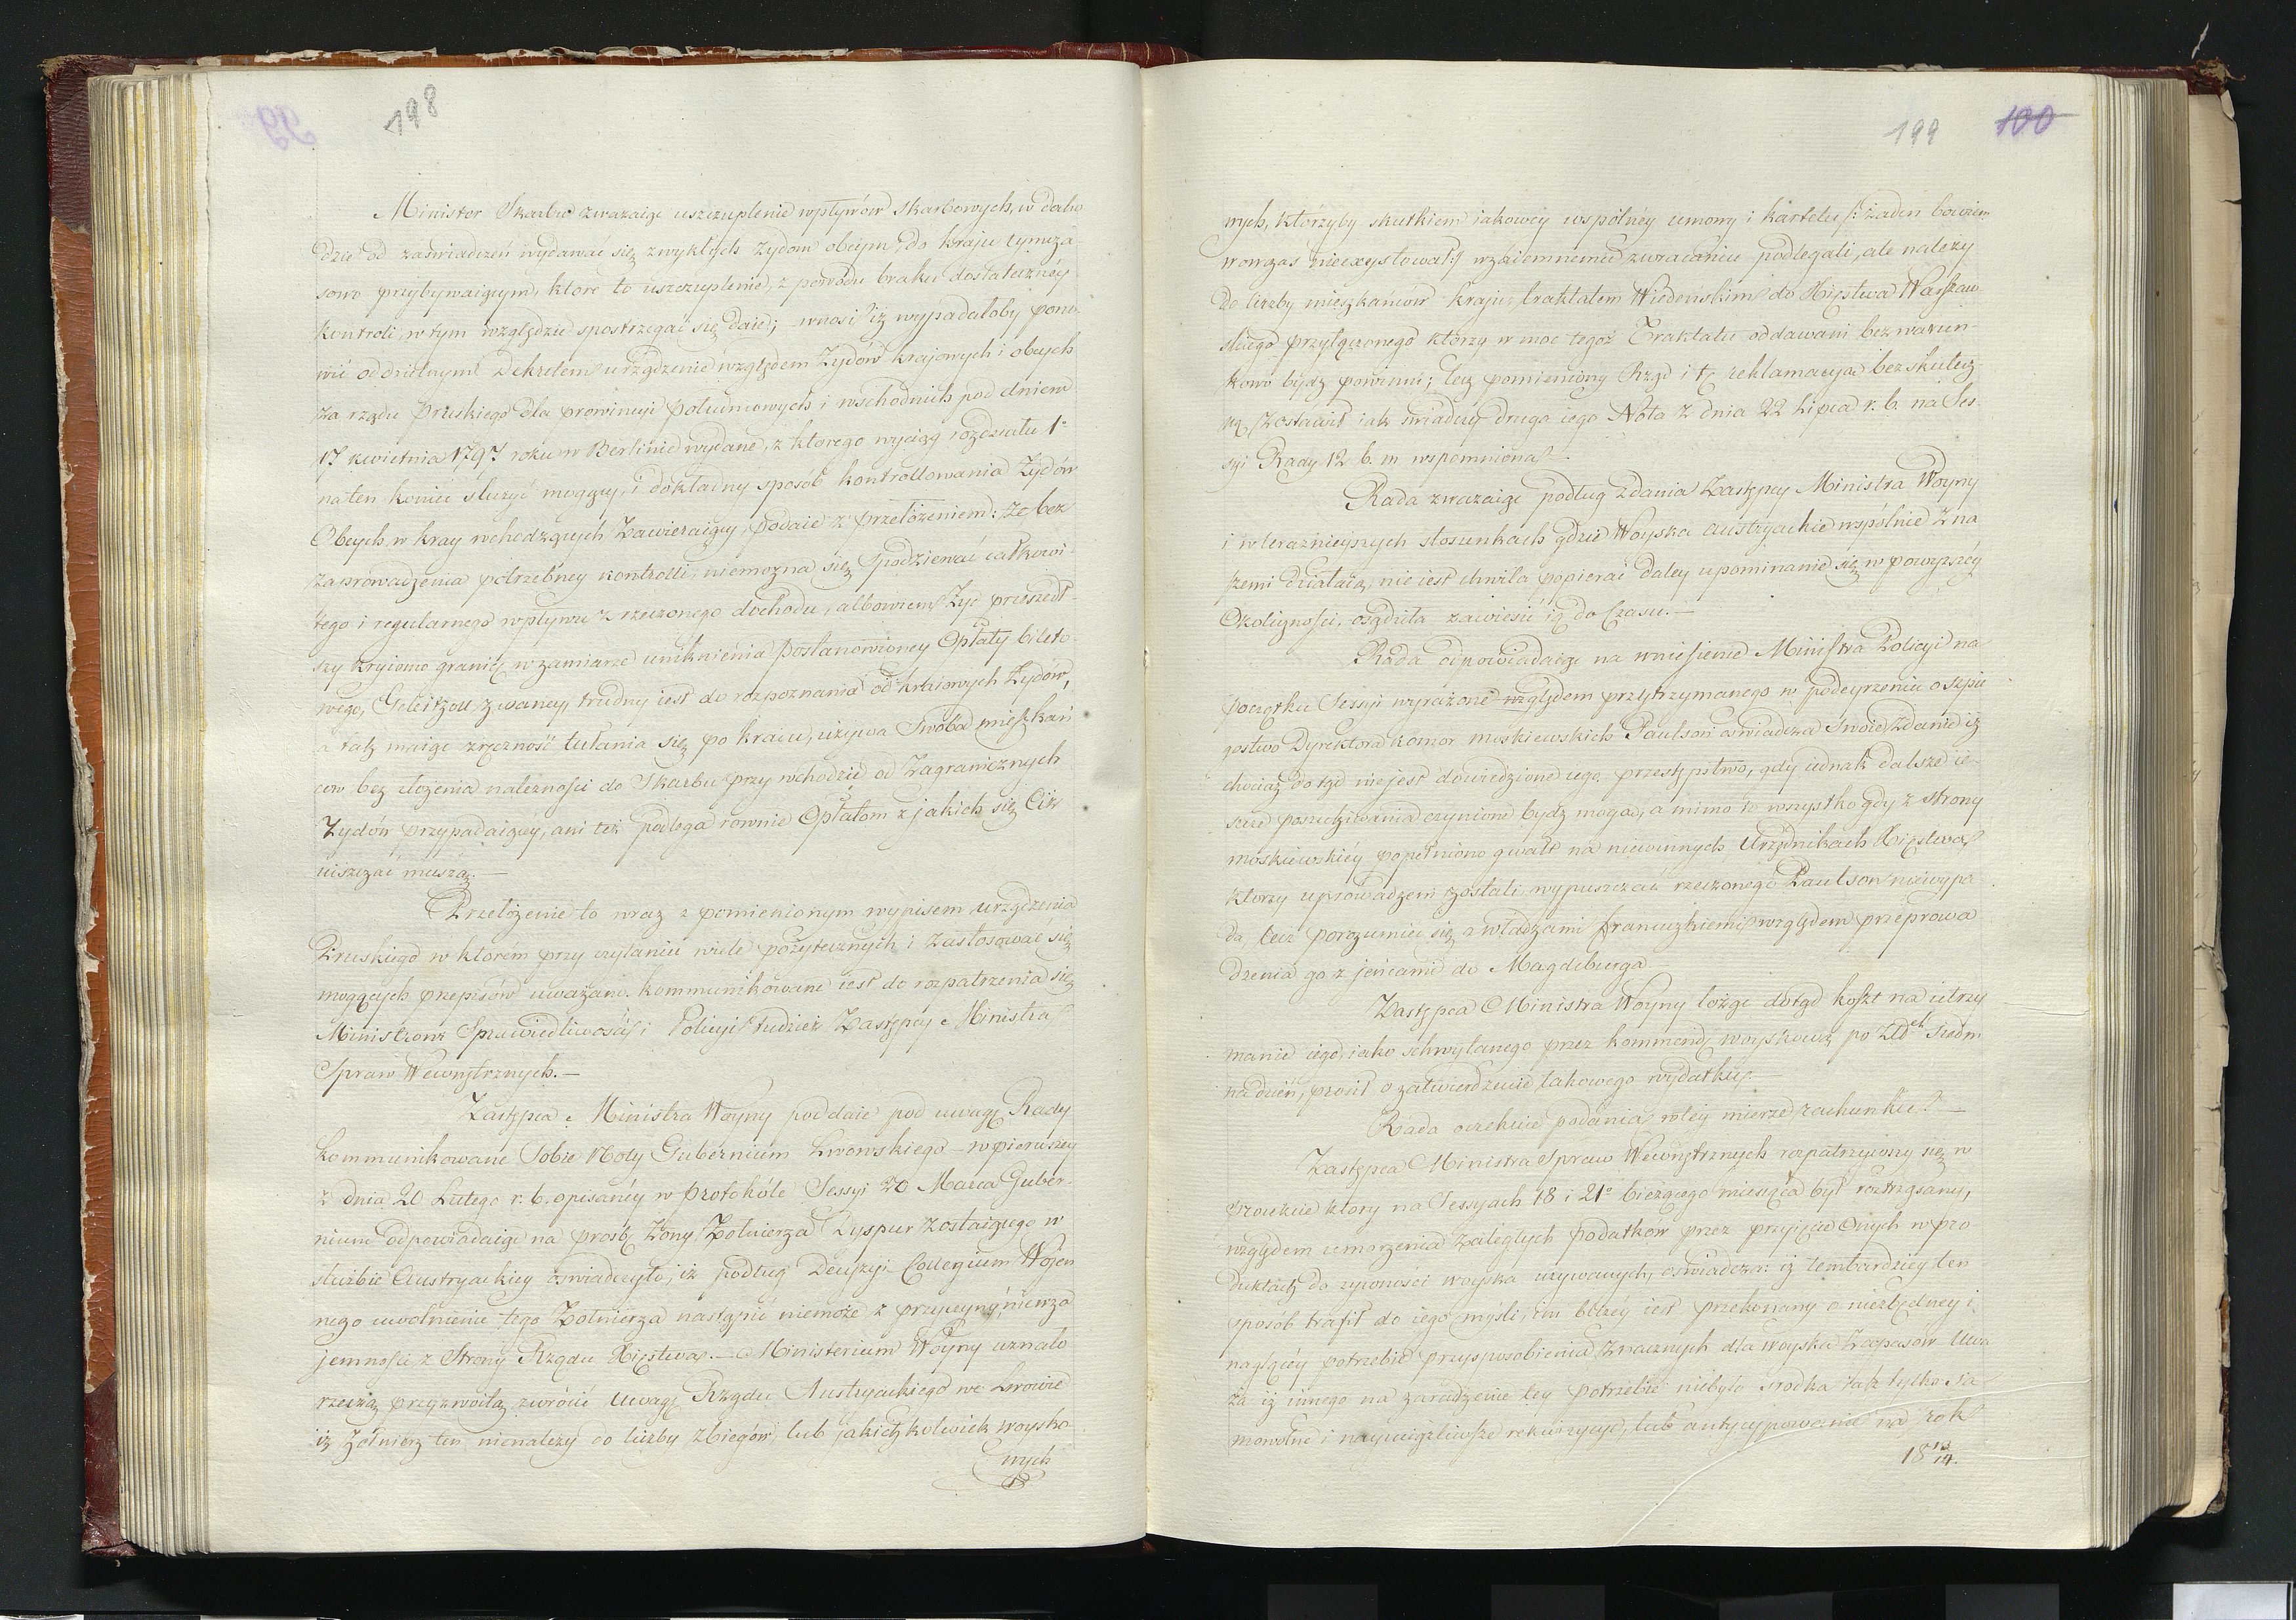 198
Minister Skarbu zwazaiąc uszczuplenie wpływów skarbowych, w docho
dzie od zaświadczeń wydawać się zwykłych Żydom obcym, do kraju tymcza-
sowo przybywaiącym, które to uszczuplenie, z powodu braku dostateczney
kontroli, w tym względzie spostrzegać się daie; wnosi iż wypadałoby pono-
wić oddzielnym Dekretem urządzenie względem Żydów krajowych i obcych
za rządu Pruskiego dla prowincyi południowych i wschodnich pod dniem
17 kwietnia 1797 roku w Berlinie wydane, z którego wyciąg rozdziału 1°
na ten koniec służyć mogący, i dokładny sposób kontrollowania Żydów
Obcych w kray wchodzących zawieraiący, podaie z przełożeniem: że bez
zaprowadzenia potrzebney kontrolli, niemożna się spodziewać całkowi-
tego i regularnego wpływu z rzeczonego dochodu, albowiem Żyd przeszedł-
szy kryiomo granicę w zamiarze uniknienia postanowioney Opłaty bileto-
wego, Geleitzoll zwaney, trudny iest do rozpoznania od kraiowych Żydów,
a tak maiąc zręczność tułania się po kraiu, używa Swobod mieszkań
ców bez złożenia należności do Skarbu przy wchodzie od Zagranicznych
Żydów przypadaiącey, ani też podlega równie Opłatom z jakich się Ciż
uiszczać muszą.—
Przełożenie to wraz z pomienionym wypisem urządzenia
Pruskiego w którém przy czytaniu wiele pożytecznych i zastosować się
mogących przepisów uważano, kommunikowane iest do rozpatrzenia się
Ministrom Sprawiedliwości i Policyi tudzież Zastępcy Ministra
Spraw Wewnętrznych.—
Zastępca Ministra Woyny poddaie pod uwagę Rady
kommunikowane Sobie Noty Gubernium Lwowskiego — w pierwszey
z dnia 20 Lutego r. b. opisanéy w protokóle Sessyi 20 Marca Guber-
nium odpowiadaiąc na prosbę Żony Żołnierza Ryspur zostaiącego w
służbie Austryackiey oświadczyło, iż podług Decyzyi Collegium Wojen
nego uwolnienie tego Żołnierza nastąpić niemoże z przyczyny niewza
jemności z Strony Rządu Xięstwa. — Ministerium Woyny uznało
rzeczą przyzwoitą zwrócić uwagę Rządu Austryackiego we Lwowie
iż żołnierz ten nienależy do liczby zbiegów, lub jakichkolwiek woysko
wych
199 100
wych, którzyby skutkiem jakowéy wspólnéy umowy i kartelu /: żaden bowiem
wowczas nieexystował :/ wzaiemnemu zwracaniu podlegali, ale należy
do liczby mieszkańców kraju traktatem Wiedeńskim do Xięstwa Warszaw-
skiego przyłączonego którzy w moc tegoż Traktatu oddawani bezwarun-
kowo bydź powinni; lecz pomieniony Rząd i tę reklamacyą bez skutecz-
ną zostawił iak świadczy druga iego Nota z dnia 22 Lipca r. b. na Ses-
syi Rady 12 b. m wspomniona.
Rada zwazaiąc podług zdania Zastępcy Ministra Woyny
i w teraźnieyszych stosunkach gdzie Woyska austryackie wspólnie z na
szemi działaią, nie iest chwila popierać daley upominanie się w powyższéy
Okoliczności, osądziła zawiesić ią do Czasu.—
Rada odpowiadaiąc na wniesienie Ministra Policyi na
początku Sessyi wyrażone względem przytrzymanego w podeyrzeniu o szpie
gostwo Dyrektora komor moskiewskich Paulson oświadcza Swoie zdanie iż
chociaż dotąd nie jest dowiedzione iego przestępstwo, gdy iednak dalsze ie-
szcze poszukiwania czynione bydź mogą, a mimo to wszystko gdy z strony
moskiewskiéy popełniono gwałt na niewinnych Urzędnikach Xięstwa
którzy uprowadzeni zostali, wypuszczać rzeczonego Paulson niewypa
da, lecz porozumieć się z władzami francuzkiemi względem przeprowa
dzenia go z jeńcami do Magdeburga.—
Zastępca Ministra Woyny łożąc dotąd koszt na utrzy
manie iego, iako schwytanego przez kommendę woyskową po Zł.ch Siedm
na dzień, prosił o zatwierdzenie takowego wydatku.—
Rada oczekuie podania w téy mierze rachunku.—
Zastępca Ministra Spraw Wewnętrznych rozpatrzywszy się w
Proiekcie który na Sessyach 18 i 21° bieżącego miesiąca był roztrząsany,
względem umorzenia zaległych podatków przez przyięcie Onych w pro
duktach do żywności woyska używanych, oświadcza: iż tembardziey ten
sposób trafił do iego myśli, im bliżéy iest przekonany o niezbędney i
naglącéy potrzebie przysposobienia znacznych dla woyska Zapasów. Uwa
ża iż innego na zaradzenie tey potrzebie niebyło srodka iak tylko Sa
mowolne i nayuciążliwsze rekwizycye, lub antycypowanie na rok
18 13/14.